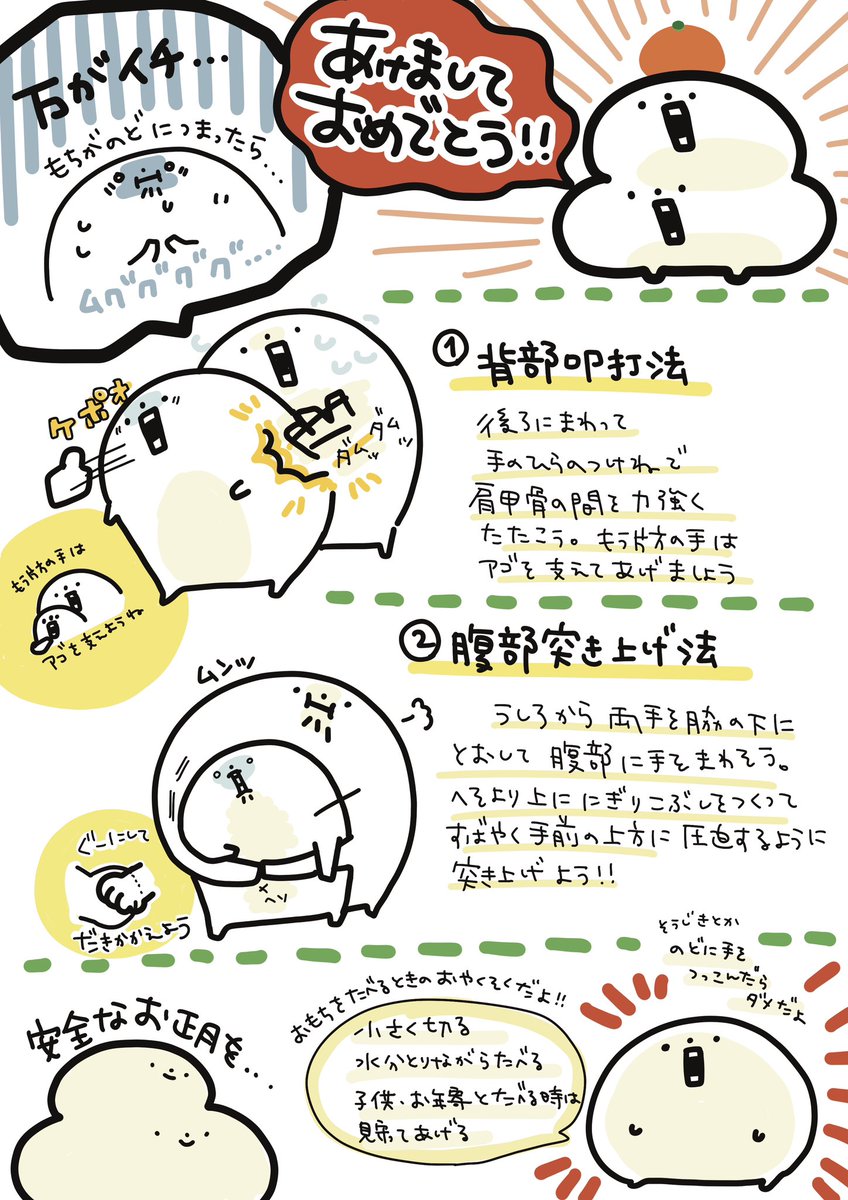 あけまして
おめでとう!!
万がイチ…
もちがのどにつまったら....
ムググググ....
① 背部叩打法
後ろにまわって
手のひらのつけねで
肩甲骨の間を力強く
たたこう。もう片方の手は
アゴを支えてあげましょう
ケポォ
ダムッ
ダムッ
もう片方の手は
アゴを支えようね
② 腹部突き上げ法
うしろから両手を脇の下に
とおして腹部に手をまわそう。
へそより上ににぎりこぶしをつくって
すばやく手前の上方に圧迫するように
突き上げよう!!
ムンッ
ヘソ
ぐーにして
だきかかえよう
そうじきとか
のどに手を
つっこんだら
ダメだよ
安全なお正月を...
おもちをたべるときのおやくそくだよ!!
小さく切る
水分とりながらたべる
子供、お年寄とたべる時は
見守ってあげる